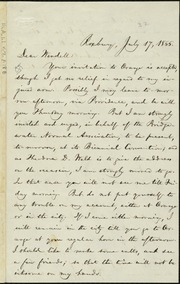 Roxbury, July 17, 1855.
Dear Wendell:
Your invitation to Orange is accepted,
though I get no relief in regard to my in
guid arm. Possibly I may leave to-mor-
row afternoon, via Providence, and be with
you Thursday morning. But I am strongly
invited and urged, in behalf of the Bridge-
water Normal Association, to be present, to-
morrow, at its Biennial Convention; and
as Theodore D. Weld is to give the address
on the occasion, I am strongly moved to go.
In that case you will not see me till Friday
morning. You need not put yourself to
any trouble on my account, either at Orange
or in the city. If I come in the morning, I
will remain in the city till you go to Or-
ange at your regular hour in the afternoon.
I should like to make some calls, and see
a few friends, so that the time will not
be irksome on my hands.